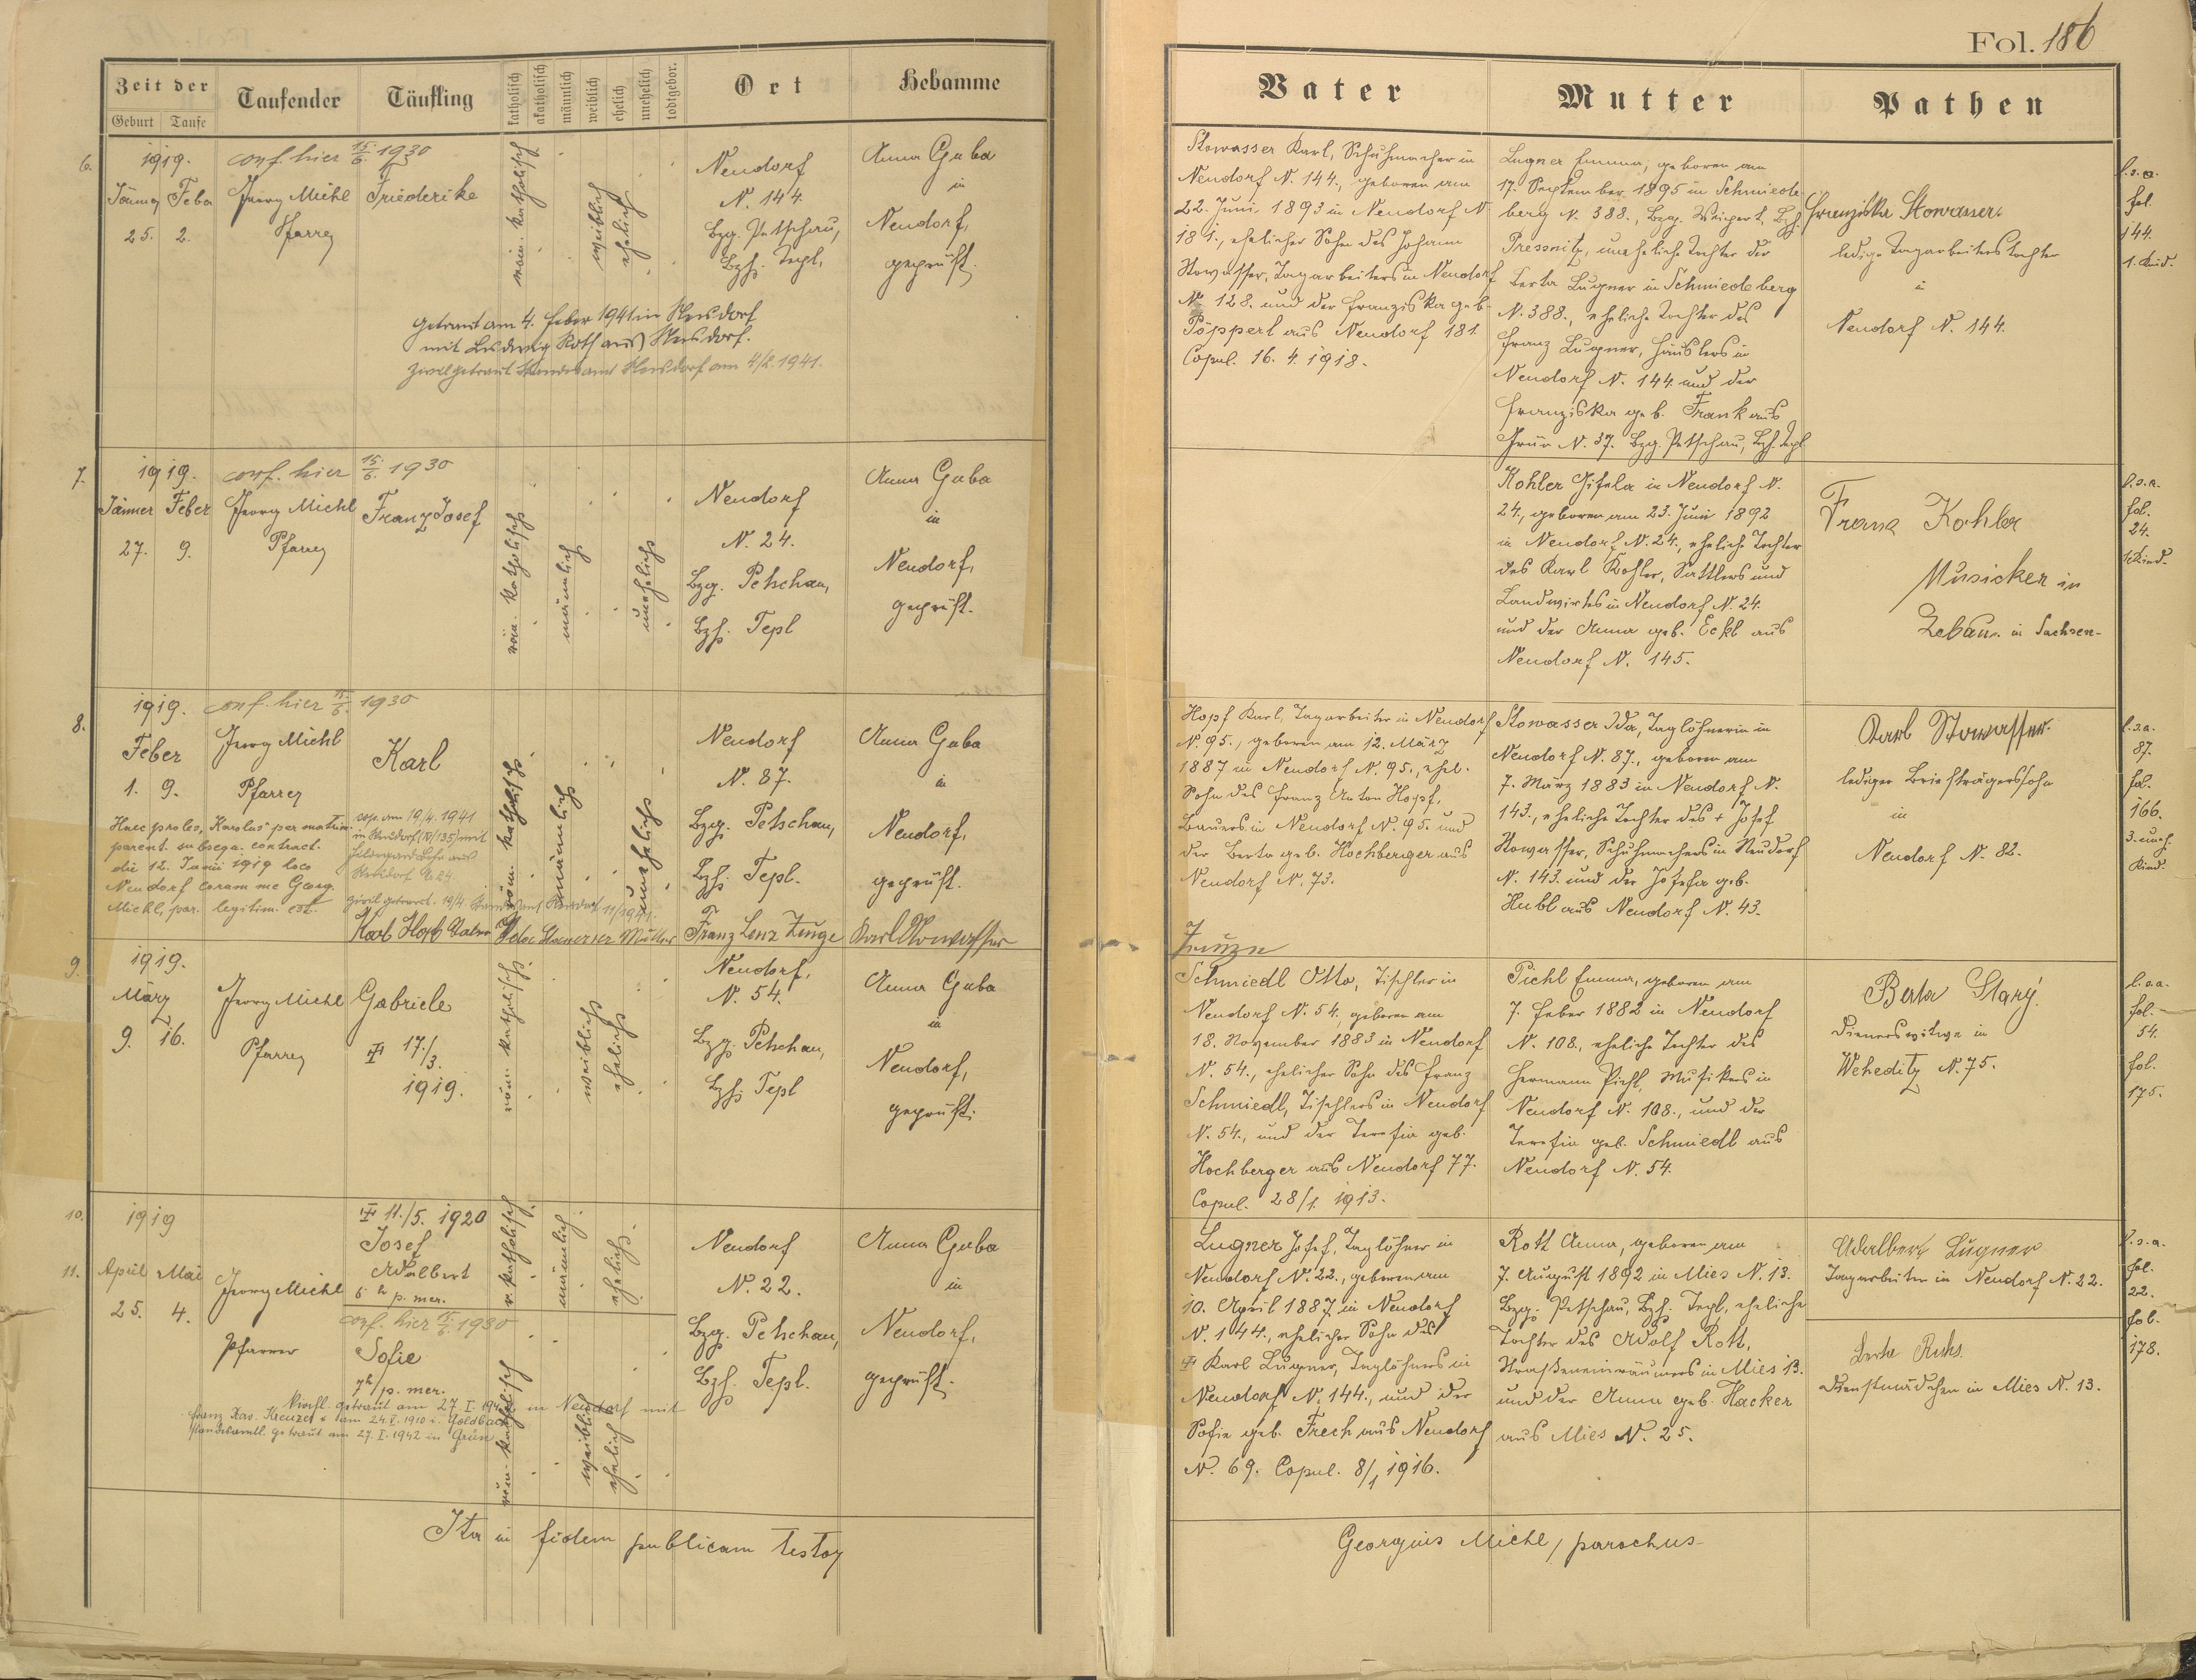 Fol. 186
Zeit der
Geburt Taufe
Taufender
Täufling
katholisch
akatholisch
männlich
weiblich
ehelich
unehelich
todtgebor.
Ort
Hebamme
Vater
Mutter
Pathen
6.
1919.
Jänner Feber
25. 2.
conf. hier 15./6. 1930
Georg Michl
Pfarrer
Friederike
röm. katholisch
weiblich
ehelich
Neudorf
N. 144
Bzg. Petschau,
Bzh. Tepl.
Anna Gaba
in
Neudorf,
geprüft.
getraut am 4. Feber 1941 in
mit Ludwig Roth aus
Zivilgetraut Standesamt am 4/2. 1941.
Stowasser Karl, Schuhmacher in
Neudorf N. 144., geboren am
22. Juni 1893 in Neudorf N
181., ehelicher Sohn des Johann
Stowasser, Tagarbeiters in Neudorf
N. 128. und der Franziska geb.
Pöpperl aus Neudorf 181.
Copul. 16. 4. 1918.
Lugner Emma, geboren am
17. September 1895 in Schmiede-
berg N. 388., Bzg. Weipert, Bzh.
Pressnitz, uneheliche Tochter der
Berta Lugner in Schmiedeberg
N. 388., eheliche Tochter des
Franz Lugner, Häuslers in
Neudorf N. 144 und der
Franziska geb. Frank aus
Grün N. 37. Bzg. Petschau, Bzh. Tepl
Franziska Stowasser.
ledige Tagarbeiterstochter
in
Neudorf N. 144.
l.s.a.
fol.
144.
1. Kind.
7.
1919.
Jänner Feber
27. 9.
conf. hier 15./6. 1930
Georg Michl
Pfarrer
Franz Josef
röm. katholisch
männlich
unehelich
Neudorf
N. 24.
Bzg. Petschau,
Bzh. Tepl
Anna Gaba
in
Neudorf,
geprüft.
Kohler Gisela in Neudorf N.
24., geboren am 23. Juni 1892
in Neudorf N. 24., eheliche Tochter
des Karl Kohler, Sattlers und
Landwirtes in Neudorf N. 24.
und der Anna geb. Eckl aus
Neudorf N. 145.
Franz Kohler
Musicker in
in Sachsen-
l.s.a.
fol.
24.
1. Kind.
8.
1919.
Feber
1. 9.
conf. hier 15./6. 1930
Georg Michl
Pfarrer
Karl
röm. katholisch
männlich
unehelich
Neudorf
N. 87.
Bzg. Petschau,
Bzh. Tepl.
Anna Gaba
in
Neudorf,
geprüft.
Haec proles, "Karolus" per matrim.
parent. subsequ. contract.
die 12. Junii 1919 loco
Neudorf coram me Georg.
Michl, par. legitim. est.
cop. am 19/4. 1941
mit
aus
Karl Hopf Vater Ida Stowasser Mutter Franz Lenz Zeuge Karl Stowasser
Zeuge
Hopf Karl, Tagarbeiter in Neudorf
N. 95., geboren am 12. März
1887 in Neudorf N. 95., ehel.
Sohn des Franz Anton Hopf,
Bauers in Neudorf N. 95. und
der Berta geb. Hochberger aus
Neudorf N. 73.
Stowasser Ida, Taglöhnerin in
Neudorf N. 87., geboren am
7. März 1883 in Neudorf N.
143., eheliche Tochter des + Josef
Stowasser, Schuhmachers in Neudorf
N. 143. und der Josefa geb.
Hubl aus Neudorf N. 43.
Karl Stowasser.
lediger Briefträgerssohn
in
Neudorf N. 82.
l.s.a.
87.
fol.
166.
3. uneh.
Kind.
9.
1919.
März
9. 16.
Georg Michl
Pfarrer
Gabriele
17./3.
1919.
röm. katholisch
weiblich
ehelich
Neudorf,
N. 54.
Bzg. Petschau,
Bzh. Tepl
Anna Gaba
in
Neudorf,
geprüft.
Schmiedl Otto, Tischler in
Neudorf N. 54. geboren am
18. November 1883 in Neudorf
N. 54., ehelicher Sohn des Franz
Schmiedl, Tischlers in Neudorf
N. 54., und der Teresia geb.
Hochberger aus Neudorf 77.
Copul. 28/1. 1913.
Pichl Emma, geboren am
7. Feber 1882 in Neudorf
N. 108., eheliche Tochter des
Hermann Pichl, Musikers in
Neudorf N. 108., und der
Teresia geb. Schmiedl aus
Neudorf N. 54.
Berta Starý.
Dienerswitwe in
Weheditz N. 75.
l.s.a.
fol.
54.
fol.
175.
10.
11.
1919
April Mai
25. 4.
Georg Michl
Pfarrer
11./5. 1920
Josef
Adalbert
6 h p. mer.
r. katholisch
männlich
ehelich
conf. hier 15./6. 1930
Sofie
7h p. mer.
röm. katholisch
weiblich
ehelich
Kirchl. getraut am 27. I. 1942 in Neudorf mit
Franz Xav. Kreuzer * am 24. 1910 i. Goldbach
standesamtl. getraut am 27. I. 1942 in Grün
Neudorf
N. 22.
Bzg. Petschau,
Bzh. Tepl.
Anna Gaba
in
Neudorf,
geprüft.
Lugner Josef, Taglöhner in
Neudorf N. 22., geboren am
10. April 1887 in Neudorf
N. 144., ehelicher Sohn des
Karl Lugner, Taglöhners in
Neudorf N. 144., und der
Sofie geb. Frech aus Neudorf
N. 69. Copul. 8/1 1916.
Rott Anna, geboren am
7. August 1892 in Mies N. 13.
Bzg. Petschau, Bzh. Tepl, eheliche
Tochter des Adolf Rott,
Straßeneinräumers in Mies 13.
und der Anna geb. Hacker
aus Mies N. 25.
Adalbert Lugner
Tagarbeiter in Neudorf N. 22.
Berta
Dienstmädchen in Mies N. 13.
l.s.a.
fol.
22.
fol.
178.
Ita in fidem publicam testor
Georgius Michl, parochus